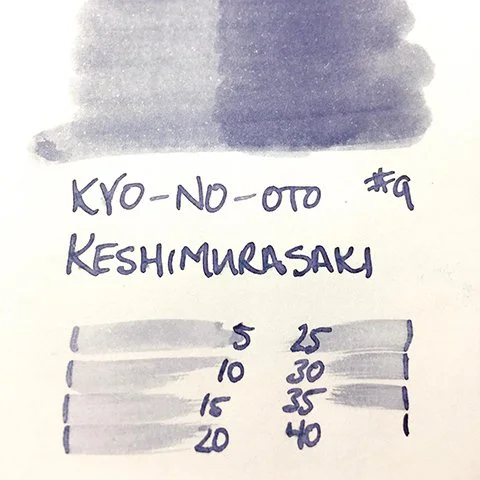 KYO-NO-OTO #9
KESHIMURASAKI
5 25
10 30
15 35
20 40